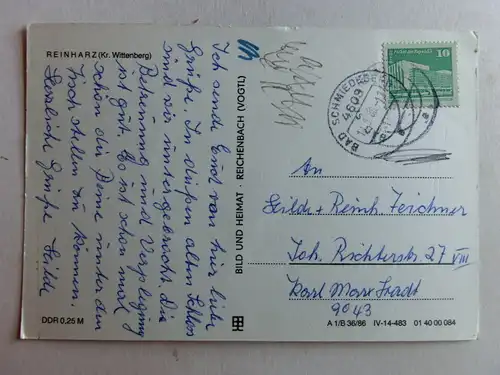 REINHARZ (Kr. Wittenberg)
Ich sende Euch von hier liebe
Grüße. In diesem alten Schloss
sind wir untergebracht. Die
Betreuung und Verpflegung
ist gut. Es ist schon mal
schön die Beine unter den
Tisch stellen zu können.
Herzliche Grüße Hilde
DDR 0,25 M
BILD UND HEIMAT · REICHENBACH (VOGTL)
10
BAD SCHMIEDEBERG
4609
An
Hilde + Reinh. Zeichner
Joh. Richterstr. 27 VIII
Karl Marx Stadt
9043
A 1/B 36/86 IV-14-483 01 40 00 084